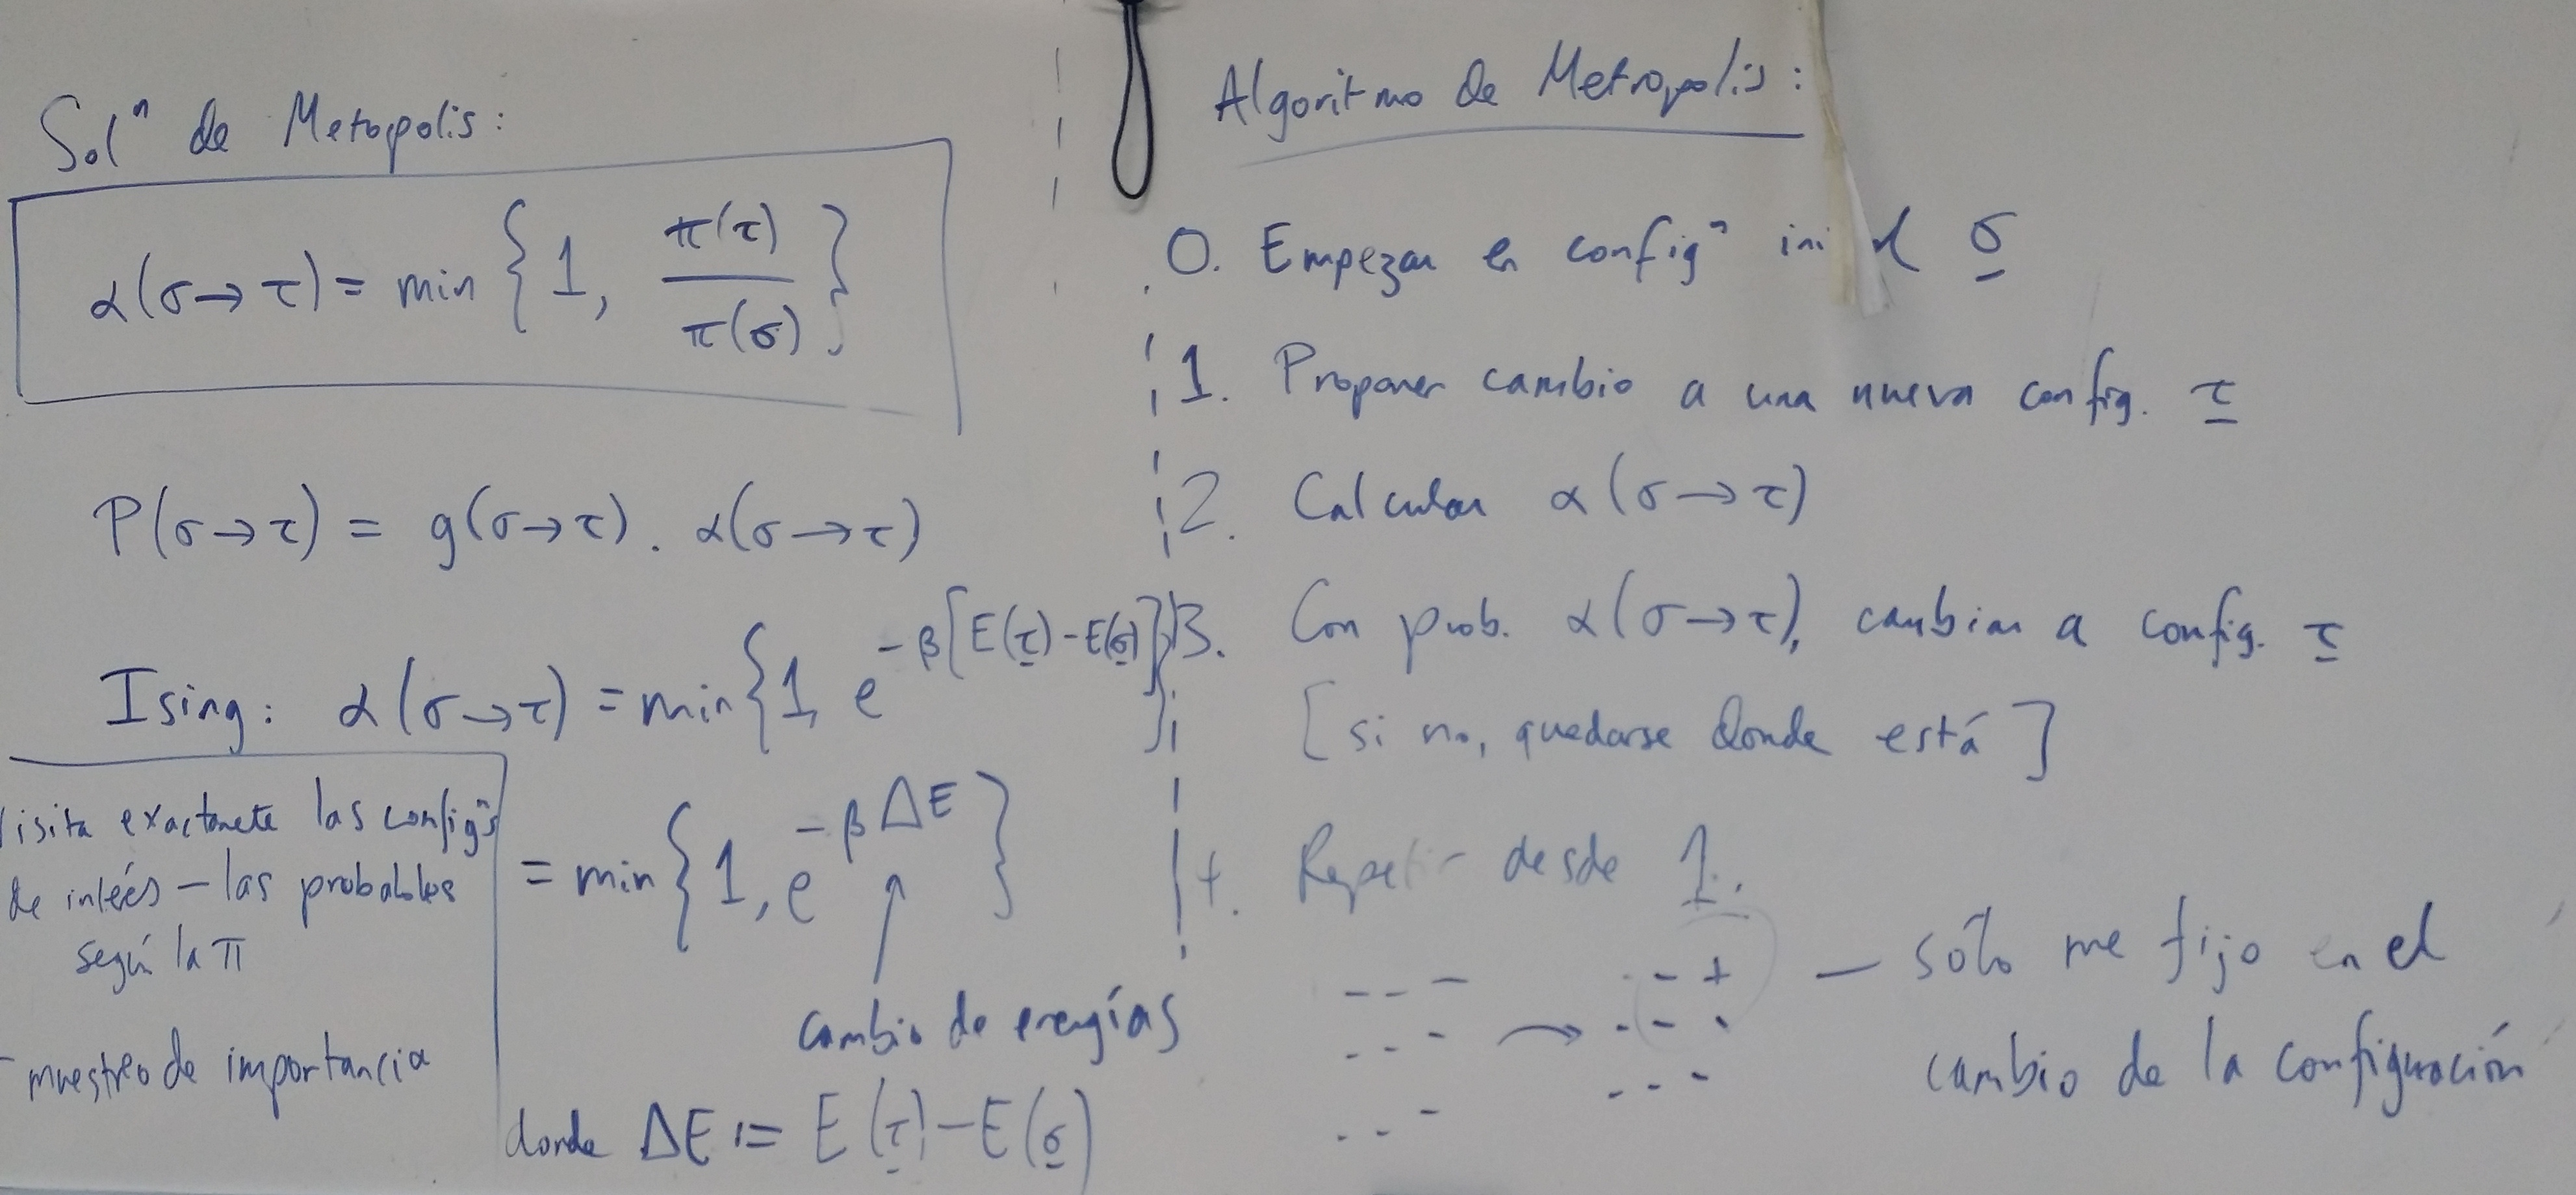 Solⁿ de Metopolis:
α(σ→τ) = min { 1, π(τ) / π(σ) }
P(σ→τ) = g(σ→τ) . α(σ→τ)
Ising: α(σ→τ) = min{1, e^{-β[E(τ)-E(σ)]}}
= min{1, e^{-βΔE}}
cambio de energías
donde ΔE := E(τ)-E(σ)
isita exactamete las configⁿs
de interés – las probables
según la π
- muestreo de importancia
Algoritmo de Metropolis:
0. Empezar en configⁿ ini l σ
1. Proponer cambio a una nueva config. τ
2. Calcular α(σ→τ)
3. Con prob. α(σ→τ), cambiar a config. τ
[si no, quedarse donde está]
4. Repetir desde 1.
- - - - - +  — sólo me fijo en el
- - - → - - -
cambio de la configuración
- - - - - -